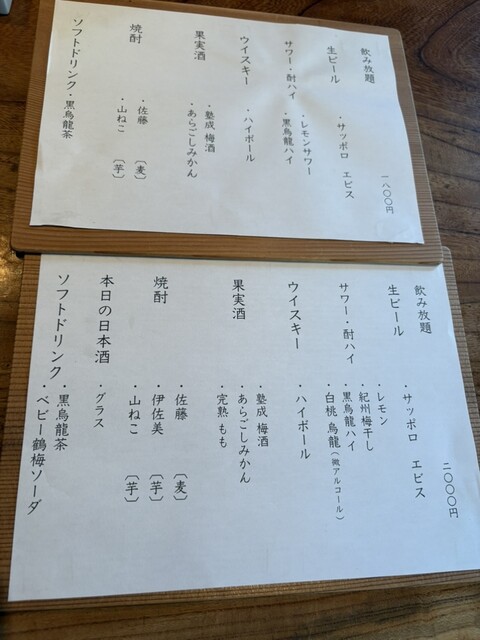 飲み放題 一八〇〇円
生ビール ・サッポロ エビス
サワー・酎ハイ ・レモンサワー
・黒烏龍ハイ
ウイスキー ・ハイボール
果実酒 ・塾成 梅酒
・あらごしみかん
焼酎 ・佐藤 〔麦〕
・山ねこ 〔芋〕
ソフトドリンク・黒烏龍茶
飲み放題 二〇〇〇円
生ビール ・サッポロ エビス
サワー・酎ハイ ・レモン
・紀州梅干し
・黒烏龍ハイ
・白桃 烏龍(微アルコール)
ウイスキー ・ハイボール
果実酒 ・塾成 梅酒
・あらごしみかん
・完熟 もも
焼酎 ・佐藤 〔麦〕
・伊佐美 〔芋〕
・山ねこ 〔芋〕
本日の日本酒 ・グラス
ソフトドリンク ・黒烏龍茶
・ベビー鶴梅ソーダ